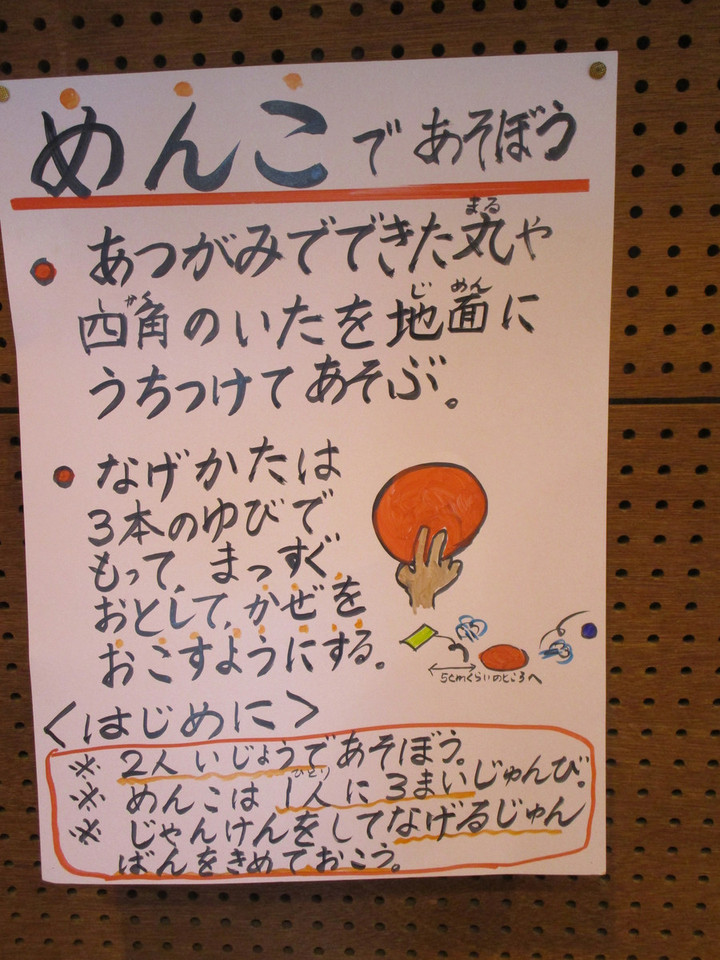 めんこであそぼう
あつがみでできた丸や
四角のいたを地面に
うちつけてあそぶ。
なげかたは
3本のゆびで
もって、まっすぐ
おとして、かぜを
おこすようにする。
5cmくらいのところへ
<はじめに>
※ 2人いじょうであそぼう。
※ めんこは1人に3まいじゅんび。
※ じゃんけんをしてなげるじゅん
ばんをきめておこう。